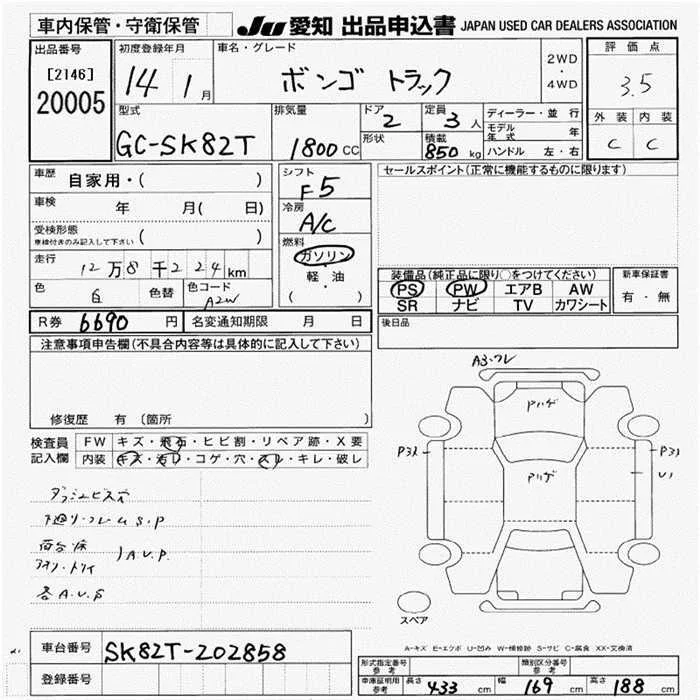 車内保管・守衛保管
JU 愛知 出品申込書 JAPAN USED CAR DEALERS ASSOCIATION
出品番号
[2146]
20005
初度登録年月
14 1月
車名・グレード
ボンゴ トラック
2WD
・
4WD
評価点
3.5
外装 内装
C C
型式
GC-SK82T
排気量
1800 CC
ドア
2
形状
定員
3人
積載
850 kg
ディーラー・並行
モデル年式 年
ハンドル 左・右
車歴
自家用・( )
車検 年 月( 日)
受検形態
車検付きのみ記入して下さい ( )
走行
12万8千224km
色 白 色替 色コード
A2W
シフト
F5
冷房
A/C
燃料
ガソリン
・
軽・油
( )
セールスポイント(正常に機能するものに限ります)
装備品(純正品に限り○をつけてください)
PS PW エアB AW
SR ナビ TV カワシート
新車保証書
有・無
R券 6690 円 名変通知期限 月 日
後日品
注意事項申告欄(不具合内容等は具体的に記入して下さい)
修復歴 有 (箇所 )
検査員
記入欄
FW キズ・飛石・ヒビ割・リペア跡・X要
内装 キズ・汚レ・コゲ・穴・スレ・キレ・破レ
ダッシュビス穴
下廻り・フレームS.P
荷台床
A.U.P
各A.U.P
A3・フレ
Pハゲ
Pハゲ
P3
P3
U1
スペア
A-キズ E-エクボ U-凹み W-補修跡 S-サビ C-腐食 XX-交換済
車台番号 SK82T-202858
登録番号
形式指定番号
参考
類別区分番号
参考
車庫証明用
参考
長さ 433 cm 幅 169 cm 高さ 188 cm